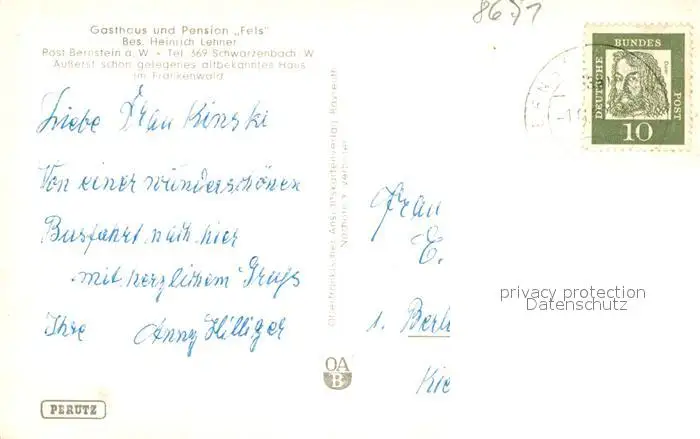 Gasthaus und Pension „Fels"
Bes. Heinrich Lehner
Post Bernstein a. W. - Tel. 369 Schwarzenbach W
Äußerst schön gelegenes altbekanntes Haus
im Frankenwald
Liebe Frau Kinski
Von einer wunderschönen
Busfahrt nach hier
mit herzlichem Gruß
Ihre Anny Hilliger
PERUTZ
Oberfränkischer Ansichtskartenverlag Bayreuth
Nachdruck verboten
OA
B
DEUTSCHE
BUNDES
POST
10
Frau
E.
1. Berl
Kie
privacy protection
Datenschutz